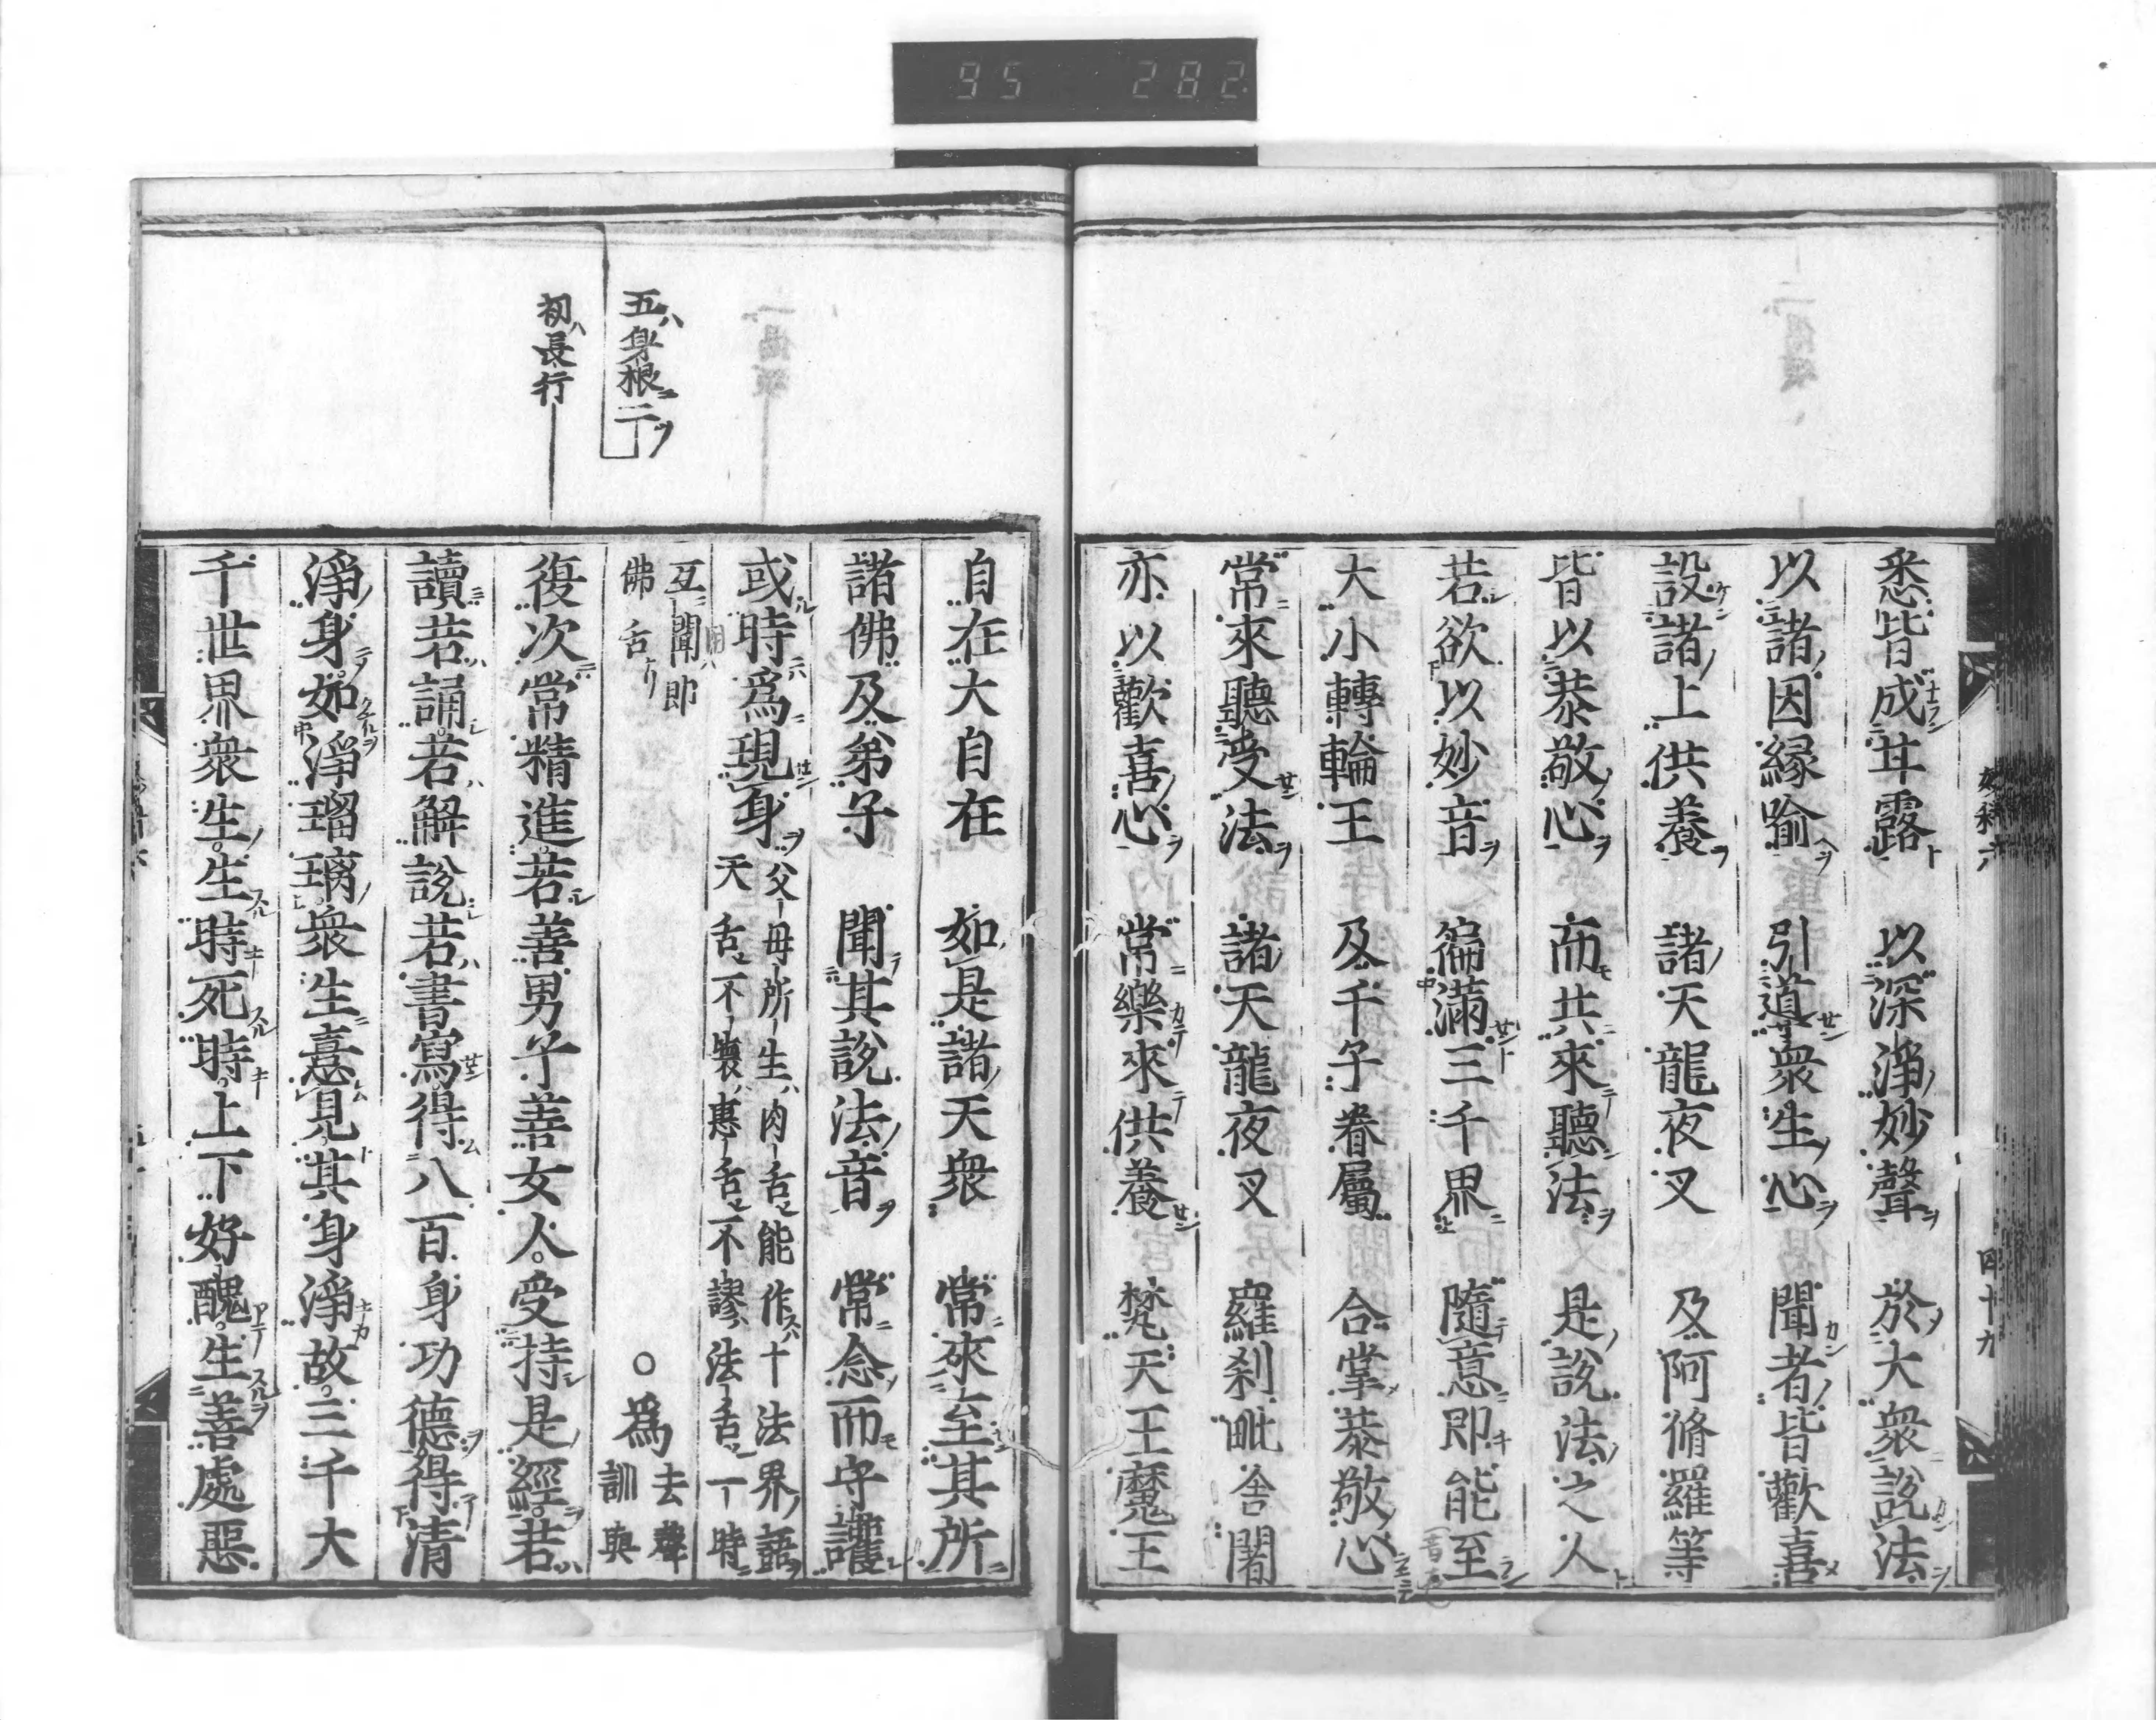 95 282
悉皆成甘露 以深淨妙聲 於大衆説法
以諸因縁喩 引道衆生心 聞者皆歡喜
設諸上供養 諸天龍夜叉 及阿脩羅等
皆以恭敬心 而共來聽法 是説法之人
若欲以妙音 徧滿三千界 隨意即能至
大小轉輪王 及千子眷屬 合掌恭敬心
常來聽受法 諸天龍夜叉 羅刹毗舎闍
亦以歡喜心 常樂來供養 梵天王魔王
四十九
自在大自在 如是諸天衆 常來至其所
諸佛及弟子 聞其説法音 常念而守護
或時爲現身 父母所生肉舌能作十法界語
天舌不壊惠舌不謬法舌一時
互聞即
佛舌 ○爲 去聲
訓與
五身根二
初長行
復次常精進。若善男子善女人。受持是經。若
讀若誦。若解説若書寫。得八百身功德。得清
淨身。如淨瑠璃。衆生憙見。其身淨故。三千大
千世界衆生。生時死時。上下好醜。生善處惡